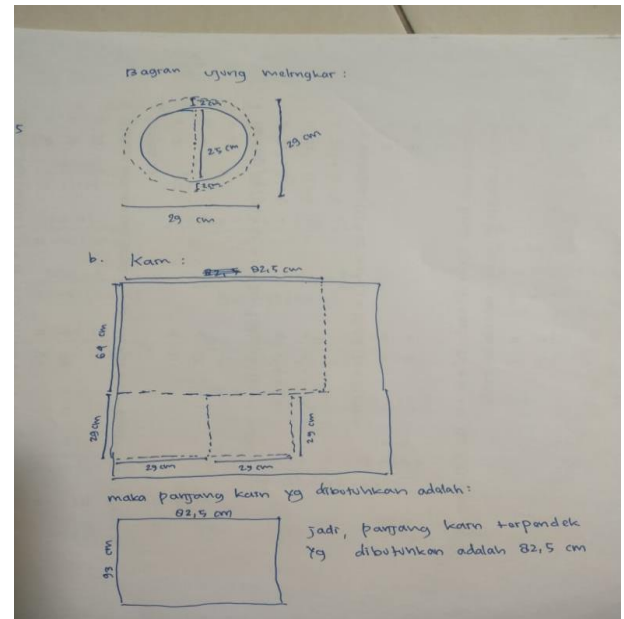 Bagian ujung melingkar :
2 cm
25 cm
2 cm
29 cm
29 cm
5
b. Kain :
82,5 82,5 cm
64 cm
29 cm
29 cm
29 cm
29 cm
maka panjang kain yg dibutuhkan adalah:
82,5 cm
93 cm
jadi, panjang kain terpendek
yg dibutuhkan adalah 82,5 cm